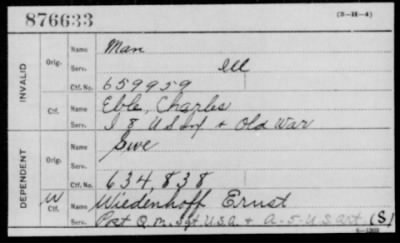 876633 (3-H-4)
INVALID
Orig. Name Man
Serv. Ill
Ctf. No. 659959
Ctf. Name Eble, Charles
Serv. I 8 U S Inf + Old War
DEPENDENT
Orig. Name Swe
Serv.
Ctf. No. 634,838
W Ctf. Name Wiedenhoff Ernst
Serv. Post Q. M. Sgt. U.S.A. + A-5-U S Art (S)